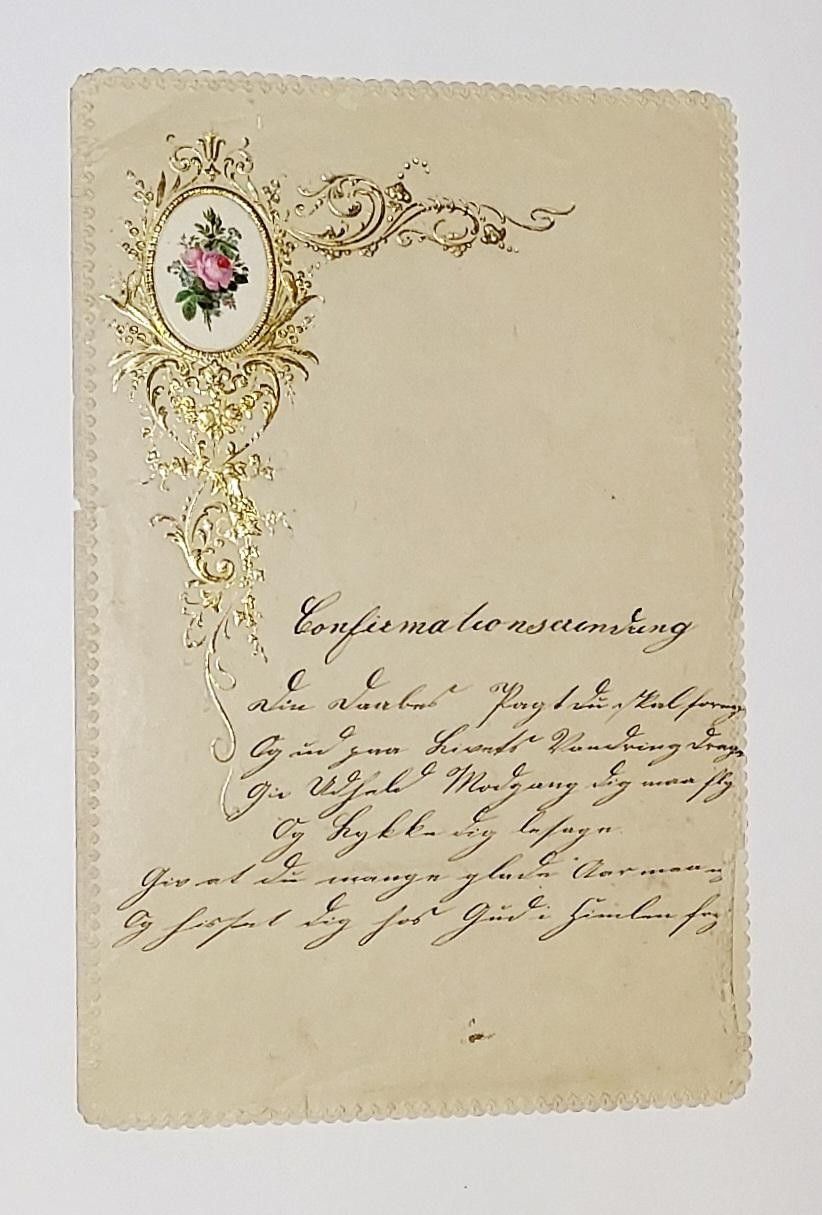 Confirmationserindung
Din Daabes Pagt du skal forny
Og ud paa Livets Vandring drage
Gid Udheld Modgang dig maa fly
Og Lykke dig
Giv at du mange glade Aar maa
Og hisset dig hos Gud i Himlen